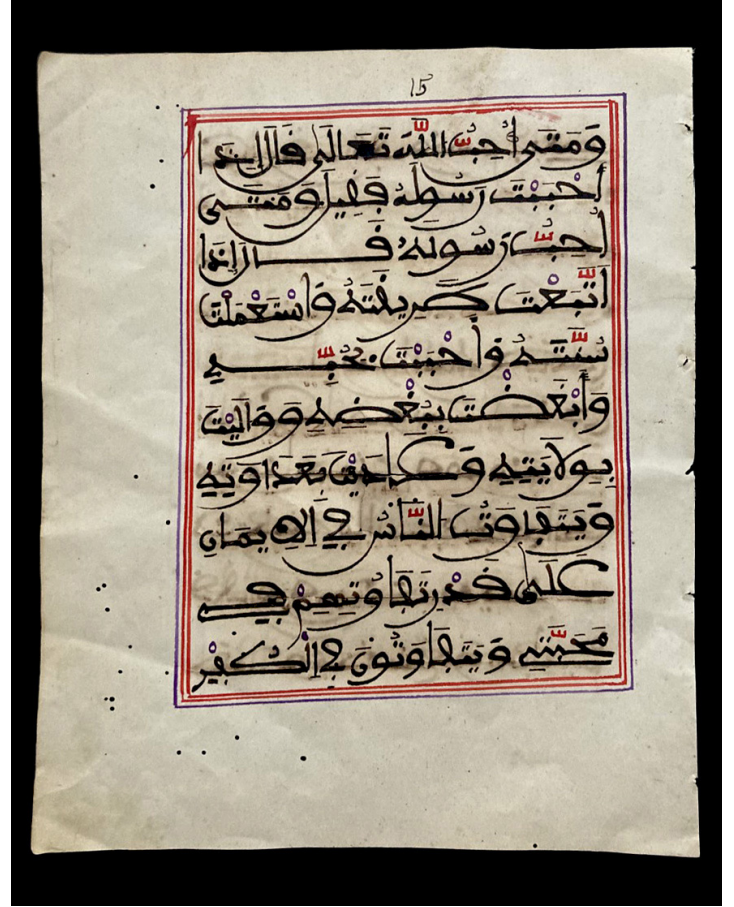 15
وَمَتَى أُحِبُّ اللَّهَ تَعَالَى قَالَ إِذَا
أَحْبَبْتَ رَسُولَهُ فَقِيلَ وَمَتَى
أُحِبُّ رَسُولَهُ قَالَ إِذَا
اتَّبَعْتَ طَرِيقَتَهُ وَاسْتَعْمَلْتَ
سُنَّتَهُ وَأَحْبَبْتَ بِحُبِّهِ
وَأَبْغَضْتَ بِبُغْضِهِ وَوَالَيْتَ
بِوَلَايَتِهِ وَعَادَيْتَ بِعَدَاوَتِهِ
وَيَتَفَاوَتُ النَّاسُ فِي الْإِيمَانِ
عَلَى قَدْرِ تَفَاوُتِهِمْ فِي
مَحَبَّتِي وَيَتَفَاوَتُونَ فِي الْكُفْرِ